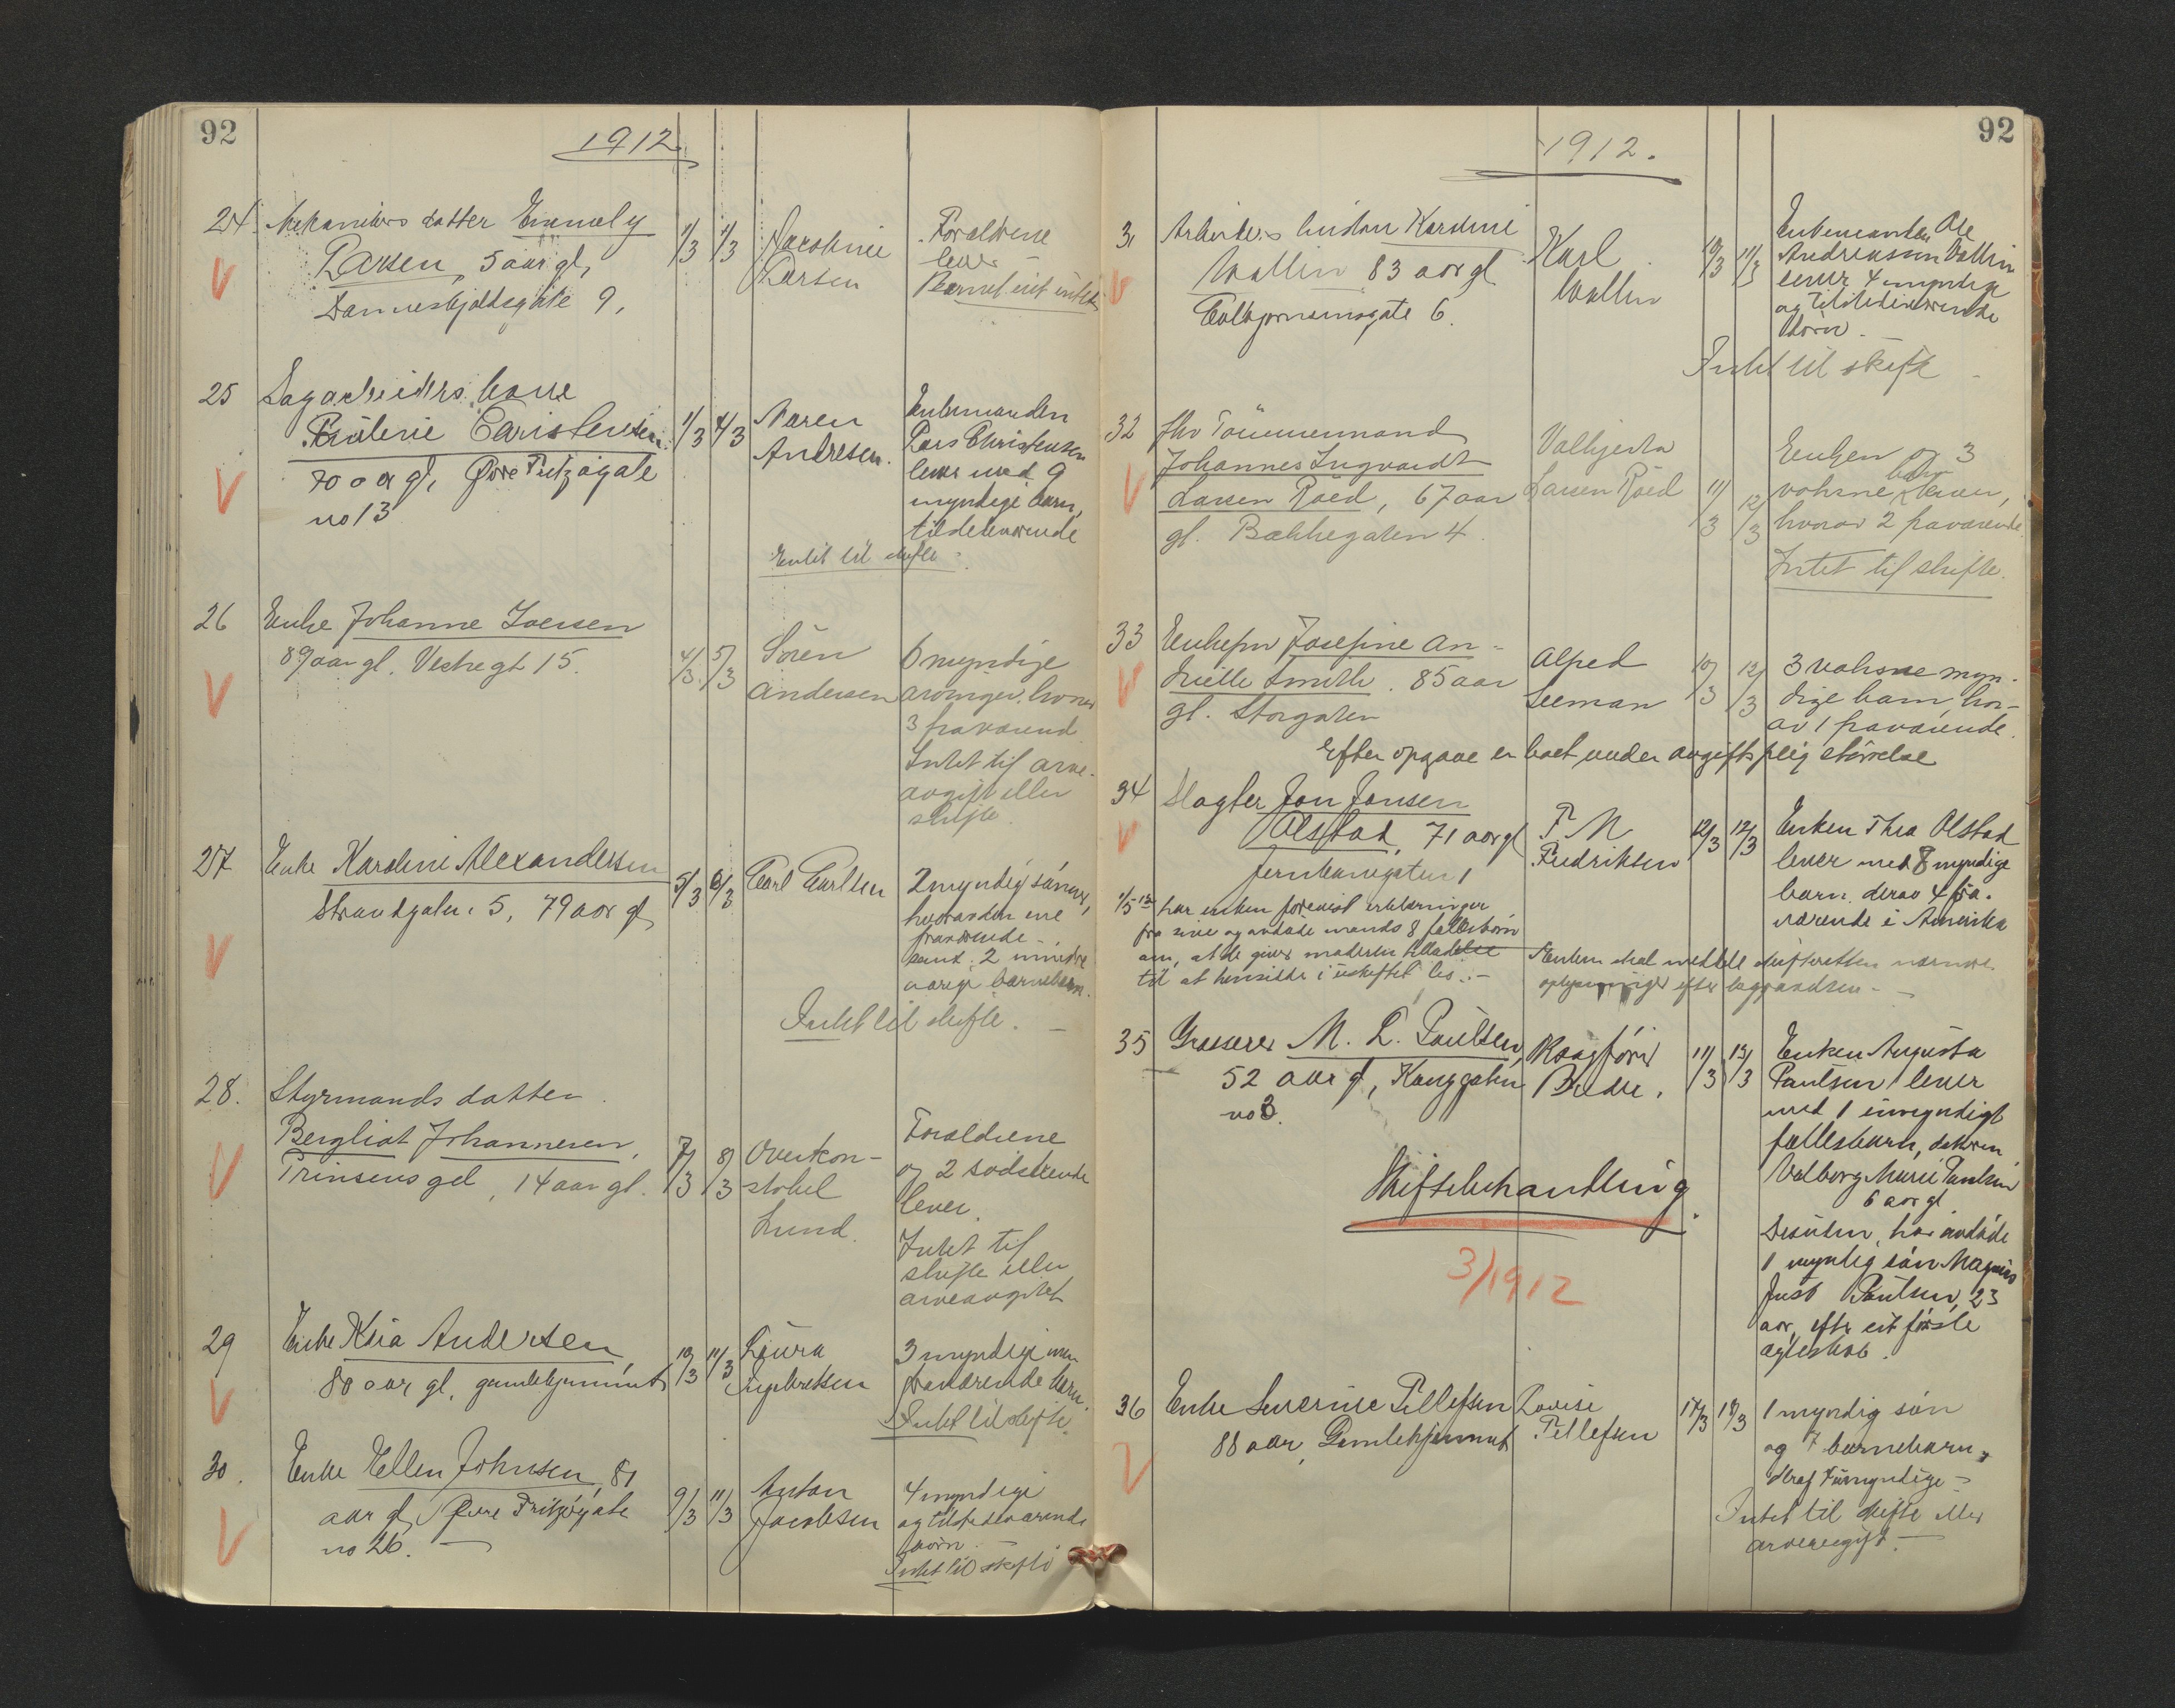 92
1912
24 Mekanikers datter Emmely 1/3 1/3 Jacobine Forældrene
Larsen, 5 aar gl, Larsen lever
Danneskjoldsgate 9, Barnet eiet intet
25 Sagarbeiders kone
Christensen 1/3 4/3 Maren Enkemanden
70 aar gl, Øvre Fritzøgate Andresen. Lars Christensen
no 13 lever med 9
myndige barn,
tilstedeværende
Intet til skifte
26 Enke Johanne Iversen
89 aar gl. Vestregt 15. 4/3 5/3 Søren 6 myndige
Andersen arvinger, hvorav
3 fraværend
Intet til arve-
avgift eller
skifte.
27 Enke Karoline Alexandersen 5/3 6/3 Carl Carlsen 2 myndige sönner,
Strandgaten 5, 79 aar gl hvorav den ene
fraværende
samt 2 mindre
aarige barnebarn.
Intet til skifte.
28. Styrmands datter
Bergliot Johannesen, 7/3 8/3 Overkon- Forældrene
Prinsensgd, 14 aar gl. stabel og 2 södskende
Lund. lever.
Intet til
skifte eller
arveavgiftet
29 Enke Andersen, 10/3 11/3 Laura 3 myndige men
80 aar gl, gamlehjemmet Ingebretsen fraværende barn.
Intet til skifte.
30. Enke Ellen Johnsen, 81 9/3 11/3 Anton 4 myndige
aar gl, Øvre Fritzøgate Jacobsen og tilstedeværende
no 26. börn.
Intet til skifte
92
1912.
31 Arbeiders hustru Karoline Karl 10/3 11/3 Enkemanden Ole
Wallin 83 aar gl Wallin Andreassen Wallin
Colbjørnsensgate 6. lever 4 myndige
og tilstedeværende
börn.
Intet til skifte
32 fhv Tömmermand Valhjerta Enken og 3
Johannes Ingvardt Larsen Röed 11/3 12/3 voksne barn lever,
Larsen Röed, 67 aar hvorav 2 fraværende
gl. Bækkegaten 4. Intet til skifte.
33 Enkefru Josefine An- Alfred 10/3 12/3 3 voksne myn-
Smith. 85 aar Seeman dige barn, hvor-
gl. Storgaten av 1 fraværende.
Efter opgave er boet under avgiftsplig störrelse
34 Slagter Jon Jansen T M 12/3 12/3 Enken Thea Olstad
Olstad, 71 aar gl Fredriksen lever med 8 myndige
Jernbanegaten 1 barn, derav 4 fra-
værende i Amerika
1/5 12 har enken forevist erklæringer
fra sine og avdøde mands 8 fællesbörn
om, at de giver moderen tilladelse
til at hensidde i uskiftet bo. -
Enken skal meddele skifteretten nærmere
oplysninger efter
35 Grosserer M. L. Paulsen, Sagförer 11/3 13/3 Enken Augusta
52 aar gl, Kongegaten Bredre. Paulsen lever
no 3. med 1 umyndigt
fællesbarn, datteren
Valborg Marie Paulsen
6 aar gl
Skiftebehandling. Desuden har avdøde
1 myndig sön Magnus
3/1912 Just Paulsen, 23
aar, efter eit förste
ægteskab.
36 Enke Severine Tellefsen Lovise 17/3 18/3 1 myndig sön
88 aar, Gamlehjemmet Tellefsen og 7 barnebarn,
deraf umyndige
Intet til skifte eller
arveavgift.